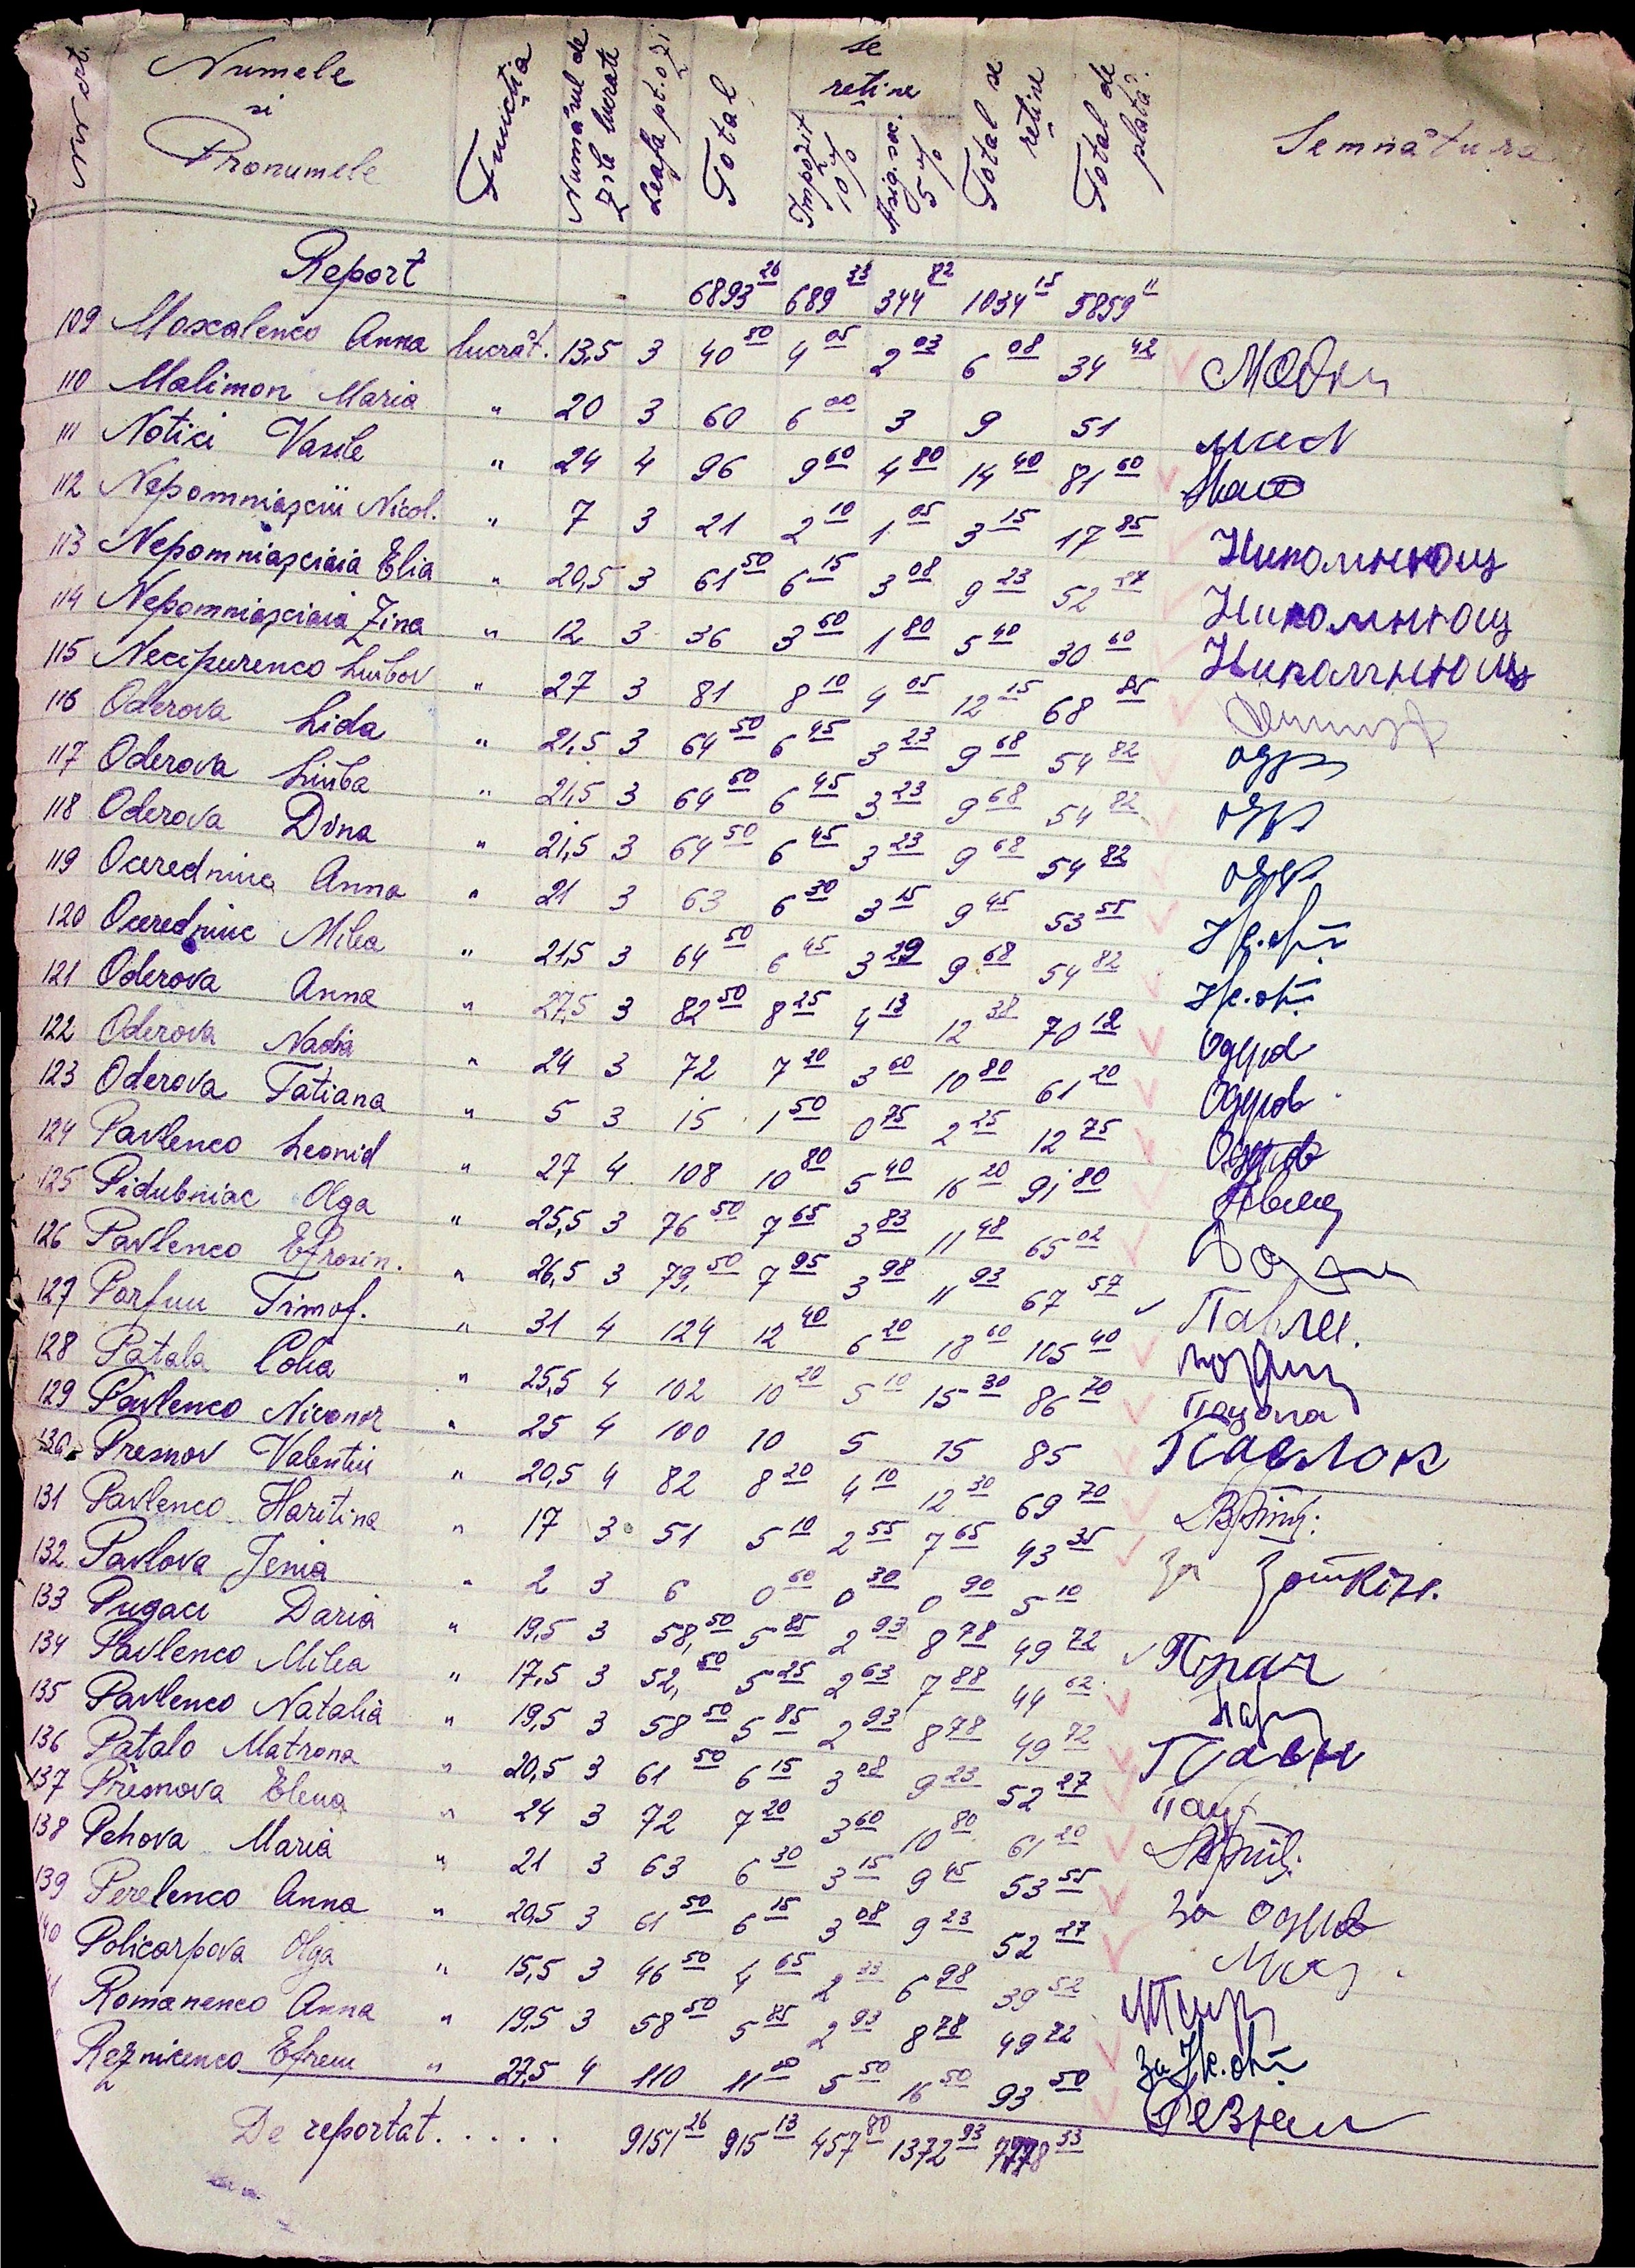 Nr. crt. Numele si Pronumele Functia Numărul de zile lucrate Leafa pt. o zi Total Se retine Impozit 10% Asig. soc. 5% Total se retine Total de plată Semnătura
Report 6893 26 689 33 344 82 1034 15 5859 11
109 Moscalenco Anna lucrăt. 13,5 3 40 50 4 05 2 03 6 08 34 42
110 Malimon Maria " 20 3 60 6 00 3 9 51
111 Notici Vasile " 24 4 96 9 60 4 80 14 40 81 60
112 Nepomniașcii Nicol. " 7 3 21 2 10 1 05 3 15 17 85 Нипомнюощ
113 Nepomniașciaia Elia " 20,5 3 61 50 6 15 3 08 9 23 52 27 Нипомнюощ
114 Nepomniașciaia Zina " 12 3 36 3 60 1 80 5 40 30 60 Нипомнюощ
115 Necipurenco Liubov " 27 3 81 8 10 4 05 12 15 68 85
116 Oderova Lida " 21,5 3 64 50 6 45 3 23 9 68 54 82
117 Oderova Liuba " 21,5 3 64 50 6 45 3 23 9 68 54 82
118 Oderova Dina " 21,5 3 64 50 6 45 3 23 9 68 54 82
119 Oceredniuc Anna " 21 3 63 6 30 3 15 9 45 53 55
120 Oceredniuc Milea " 21,5 3 64 50 6 45 3 23 9 68 54 82
121 Oderova Anna " 27,5 3 82 50 8 25 4 13 12 38 70 12
122 Oderova Nadia " 24 3 72 7 20 3 60 10 80 61 20 Одеров
123 Oderova Tatiana " 5 3 15 1 50 0 75 2 25 12 75 Одеров
124 Pavlenco Leonid " 27 4 108 10 80 5 40 16 20 91 80
125 Pidubniac Olga " 25,5 3 76 50 7 65 3 83 11 48 65 02
126 Pavlenco Efrosin. " 26,5 3 79,50 7 95 3 98 11 93 67 57 Павле.
127 Porfuu Timof. " 31 4 124 12 40 6 20 18 60 105 40
128 Patala Colia " 25,5 4 102 10 20 5 10 15 30 86 70
129 Pavlenco Niconor " 25 4 100 10 5 15 85
130 Presnov Valentin " 20,5 4 82 8 20 4 10 12 30 69 70
131 Pavlenco Haritina " 17 3 51 5 10 2 55 7 65 43 35
132 Pavlova Jenia " 2 3 6 0 60 0 30 0 90 5 10
133 Pugaci Daria " 19,5 3 58,50 5 85 2 93 8 78 49 72
134 Pavlenco Milea " 17,5 3 52,50 5 25 2 63 7 88 44 62
135 Pavlenco Natalia " 19,5 3 58 50 5 85 2 93 8 78 49 72
136 Patalo Matrona " 20,5 3 61 50 6 15 3 08 9 23 52 27
137 Presnova Elena " 24 3 72 7 20 3 60 10 80 61 20
138 Pehova Maria " 21 3 63 6 30 3 15 9 45 53 55
139 Perelenco Anna " 20,5 3 61 50 6 15 3 08 9 23 52 27
40 Policarpova Olga " 15,5 3 46 50 4 65 2 33 6 98 39 52
Romanenco Anna " 19,5 3 58 50 5 85 2 93 8 78 49 72
Reznicenco Efrem " 27,5 4 110 11 00 5 50 16 50 93 50
De reportat..... 9151 26 915 13 457 80 1372 93 7778 33